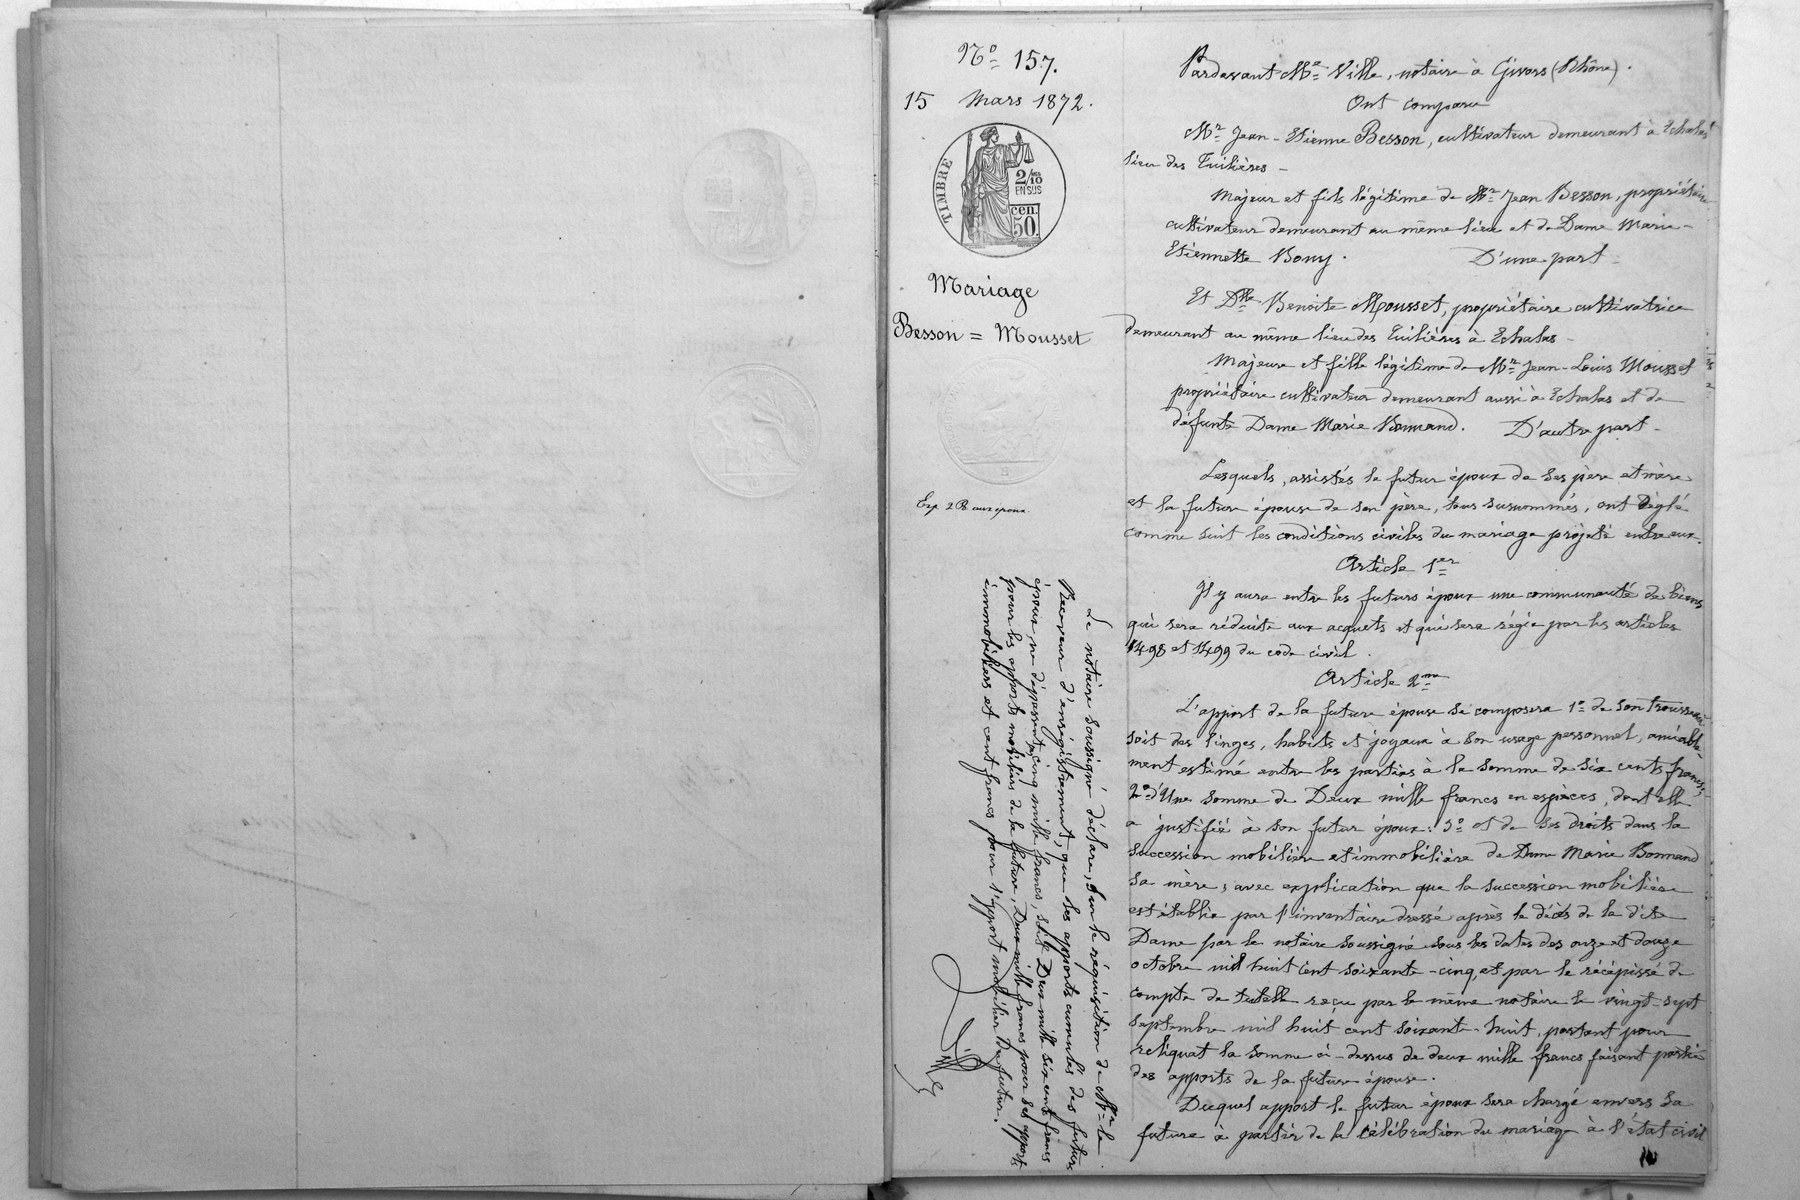 No 157.
15 Mars 1872.
TIMBRE
2/10
EN SUS
cen.
50.
Mariage
Besson = Mousset
Exp. 2 R aux époux
Le notaire soussigné déclare, sur la réquisition de Mr le
Receveur d'enregistrement, que les apports cumulés des futurs
époux ne dépassent pas cinq mille francs, soit Deux mille six cents francs
pour les apports mobiliers de la future, Deux mille francs pour ses apports
immobiliers et cent francs pour l'apport mobilier du futur.
Pardevant Me Ville, notaire à Givors (Rhône).
Ont comparu
Mr Jean-Etienne Besson, cultivateur demeurant à Echalas
lieu des Tuilières -
Majeur et fils légitime de Mr Jean Besson, propriétaire
cultivateur demeurant au même lieu et de Dame Marie-
Etiennette Bony. D'une part -
Et Dlle Benoite Mousset, propriétaire cultivatrice
demeurant au même lieu des Tuilières à Echalas -
Majeure et fille légitime de Mr Jean-Louis Mousset
propriétaire cultivateur demeurant aussi à Echalas et de
défunte Dame Marie Bonnand. D'autre part -
Lesquels, assistés le futur époux de ses père et mère
et la future épouse de son père, tous susnommés, ont réglé
comme suit les conditions civiles du mariage projeté entre eux.
Article 1er
Il y aura entre les futurs époux une communauté de biens
qui sera réduite aux acquets et qui sera régie par les articles
1498 et 1499 du code civil.
Article 2me
L'apport de la future épouse se composera 1o de son trousseau
soit des linges, habits et joyaux à son usage personnel, amiable-
ment estimé entre les parties à la somme de six cents francs
2o d'Une somme de Deux mille francs en espèces, dont elle
a justifié à son futur époux: 3o et de ses droits dans la
succession mobilière et immobilière de Dame Marie Bonnand
sa mère, avec explication que la succession mobilière
est établie par l'inventaire dressé après le décès de la dite
Dame par le notaire soussigné sous les dates des onze et douze
octobre mil huit cent soixante-cinq, et par le récépissé de
compte de tutelle reçu par le même notaire le vingt-sept
septembre mil huit cent soixante-huit, portant pour
reliquat la somme ci-dessus de deux mille francs faisant partie
des apports de la future épouse.
Duquel apport le futur époux sera chargé envers sa
future à partir de la célébration du mariage à l'état civil